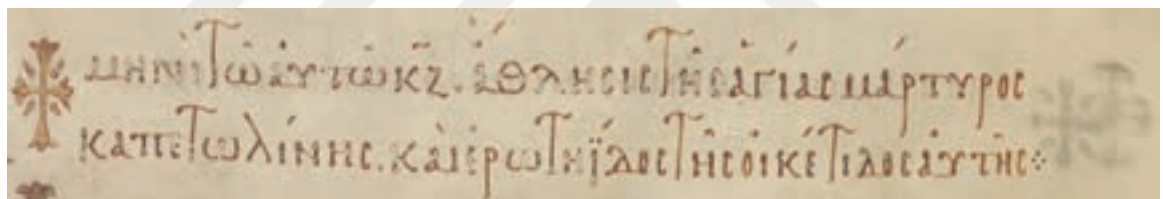 μηνὶ τῶ αὐτῶ κζ. ἄθλησις τῆς ἁγίας μάρτυρος
καπετωλίννης. καὶ ἐρωτηΐδος τῆς οἰκέτιδος αὐτῆς ⁘